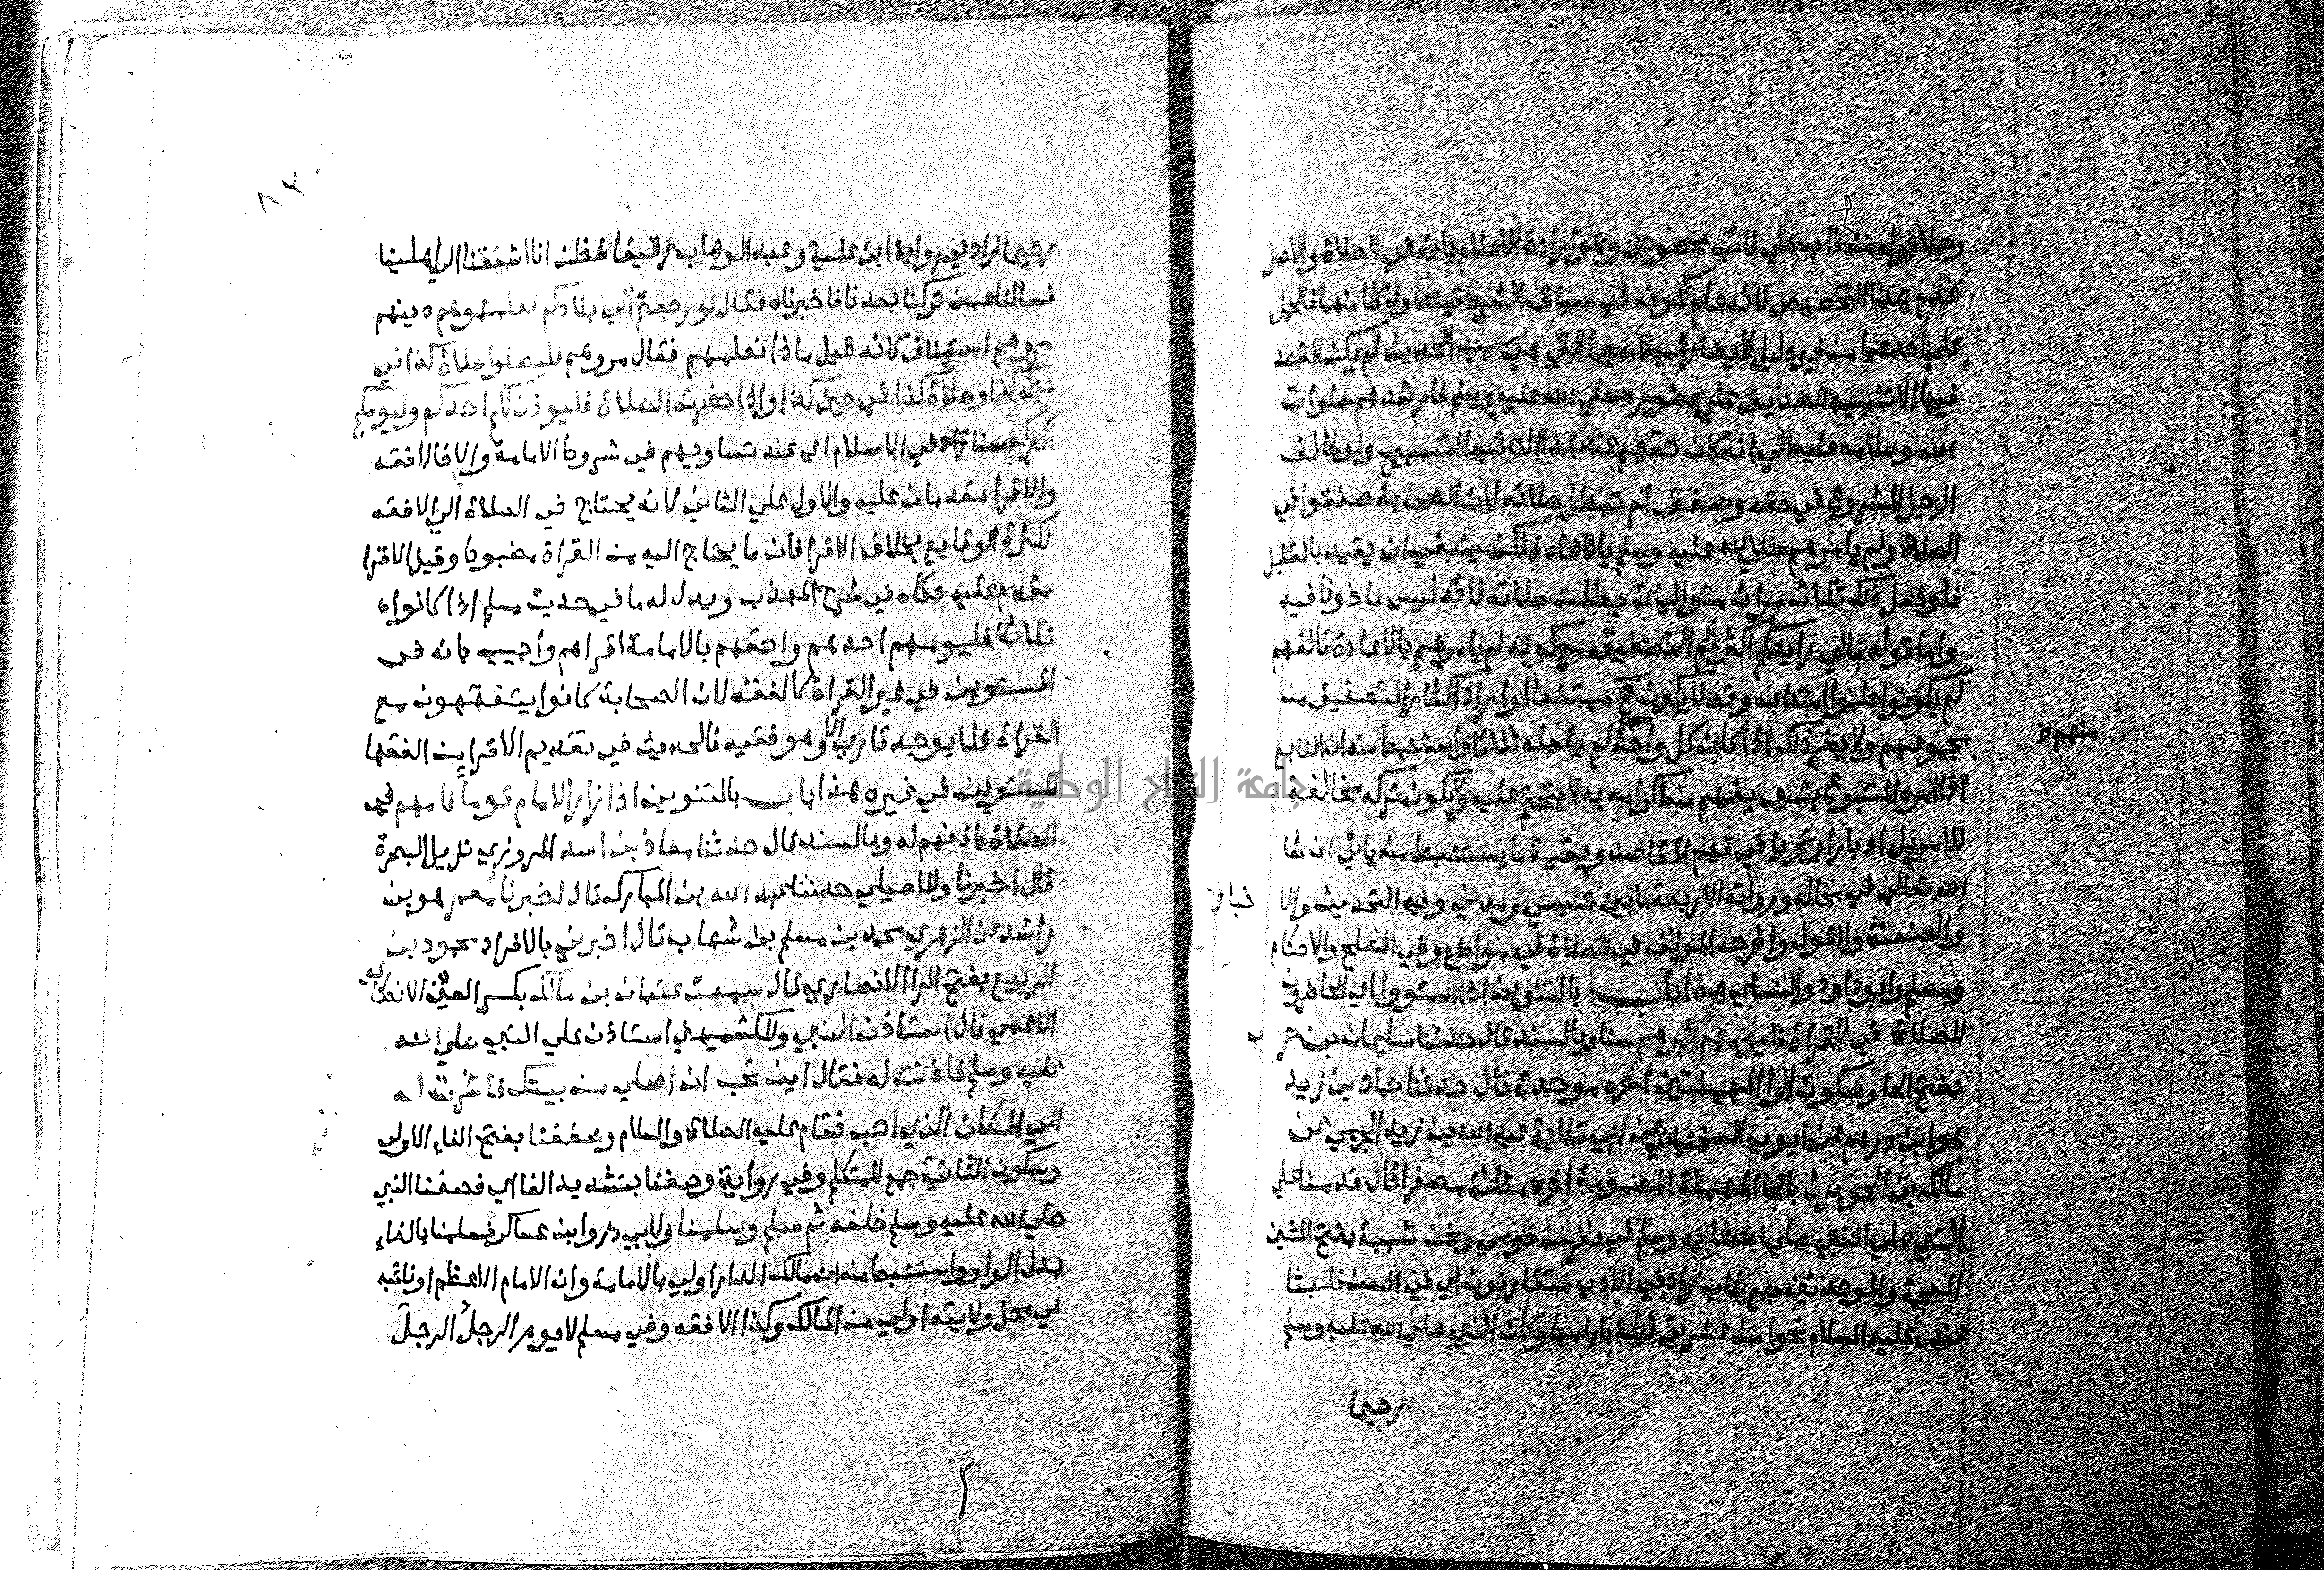 وحملا قوله من نابه علي نائب مخصوص وهو ارادة الاعلام بانه في الصلاة والاصل
عدم هذا التخصيص لانه عام لكونه في سياق الشرط فيتناول كلا منهما فالحمل
علي احدهما من غير دليل لا يصار اليه لا سيما التي هي سبب الحديث لم يكن القصد
فيها الا تنبيه الصديق علي حضوره صلي الله عليه وسلم فارشدهم صلوات
الله وسلامه عليه الي انه كان حقهم عند هذا النائب التسبيح ولو خالف
الرجل المشروع في حقه وصفق لم تبطل صلاته لان الصحابة صفقوا في
الصلاة ولم يامرهم صلي الله عليه وسلم بالاعادة لكن ينبغي ان يقيد بالقليل
فلو فعل ذلك ثلاث مرات متواليات بطلت صلاته لانه ليس ماذونا فيه
واما قوله مالي رايتكم اكثرتم التصفيق مع كونه لم يامرهم بالاعادة فلانهم
لم يكونوا علموا امتناعه وقد لا يكون ح ممتنعا او اراد اكثار التصفيق من
مجموعهم ولا يضر ذلك اذا كان كل واحد لم يفعله ثلاثا واستنبط منه ان التابع
منهم
اذا امره المتبوع بشي يفهم منه اكرامه به لا يتحتم عليه ولا يكون تركه مخالفة
للامر بل ادبا وتحريا في فهم المقاصد وبقية ما يستنبط منه ياتي ان شا
الله تعالي في محاله ورواته الاربعة مابين تنيسي ومدني وفيه التحديث والا خبار
والعنعنة والقول واخرجه المولف في الصلاة في مواضع وفي الصلح والاحكام
ومسلم وابو داود والنساي هذا باب بالتنوين اذا استووا اي الحاضرون
للصلاة في القراة فليومهم اكبرهم سنا وبالسند قال حدثنا سليمان بن حر ب
بفتح الحا وسكون الرا المهملتين اخره موحدة قال حدثنا حماد بن زيد
هو ابن درهم عن ايوب السختياني عن ابي قلابة عبد الله بن زيد الجرمي عن
مالك بن الحويرث بالحا المهملة المضمومة اخره مثلثة مصغرا قال قدمنا علي
النبي علي النبي صلي الله عليه وسلم في نفر من قومي ونحن شببة بفتح الشين
المعجمة والموحدتين جمع شاب زاد في الادب متقاربون اي في السن فلبثنا
عنده عليه السلام نحوا من عشرين ليلة بايامها وكان النبي صلي الله عليه وسلم
رحيما
رحيما زاد في رواية ابن علية وعبد الوهاب رقيقا فظن انا اشتقنا الي اهلينا
فسالنا عمن تركنا بعدنا فاخبرناه فقال لو رجعتم الي بلادكم فعلمتموهم دينهم
مروهم استيناف كانه قيل ماذا نعلمهم فقال مروهم فليصلوا صلاة كذا في
حين كذا وصلاة كذا في حين كذا واذا حضرت الصلاة فليوذن لكم احدكم وليومكم
اكبركم سنا في الاسلام اي عند تساويهم في شروط الامامة والا فالافقه
والاقرا مقدمان عليه والاول علي الثاني لانه يحتاج في الصلاة الي الافقه
لكثرة الوقايع بخلاف الاقرا فان ما يحتاج اليه من القراة مضبوط وقيل الاقرا
مقدم عليه حكاه في شرح المهذب ويدل له ما في حديث مسلم اذا كانوا
ثلاثة فليومهم احدهم واحقهم بالامامة اقراهم واجيب بانه في
المستويين في غير القراة كالفقه لان الصحابة كانوا يتفقهون مع
القراة فلا يوجد قاري الا وهو فقيه فالحديث في تقديم الاقرا من الفقها
المستويين في غيره هذا باب بالتنوين اذا زار الامام قوما فامهم في
الصلاة باذنهم له وبالسند قال حدثنا معاذ بن اسد المروزي نزيل البصرة
قال اخبرنا وللاصيلي حدثنا عبد الله بن المبارك قال اخبرنا معمر هو بن
راشد عن الزهري محمد بن مسلم بن شهاب قال اخبرني بالافراد محمود بن
الربيع بفتح الرا الانصاري قال سمعت عتبان بن مالك بكسر العين الانصاري
الاعمي قال استاذن النبي وللكشميهني استاذن علي النبي صلي الله
عليه وسلم فاذنت له فقال اين تحب ان اصلي من بيتك فاشرت له
الي المكان الذي احب فقام عليه الصلاة والسلام وصففنا بفتح الفاء الاولي
وسكون الثانية جمع للمتكلم وفي رواية وصفنا بتشديد الفا اي فصفنا النبي
صلي الله عليه وسلم خلفه ثم سلم وسلمنا ولابي ذر وابن عساكر فسلمنا بالفاء
بدل الواو واستنبط منه ان مالك الدار اولي بالامامة وان الامام الاعظم او نائبه
في محل ولايته اولي من المالك وكذا الافقه وفي مسلم لا يومن الرجل الرجل
جامعة النجاح الوطنية